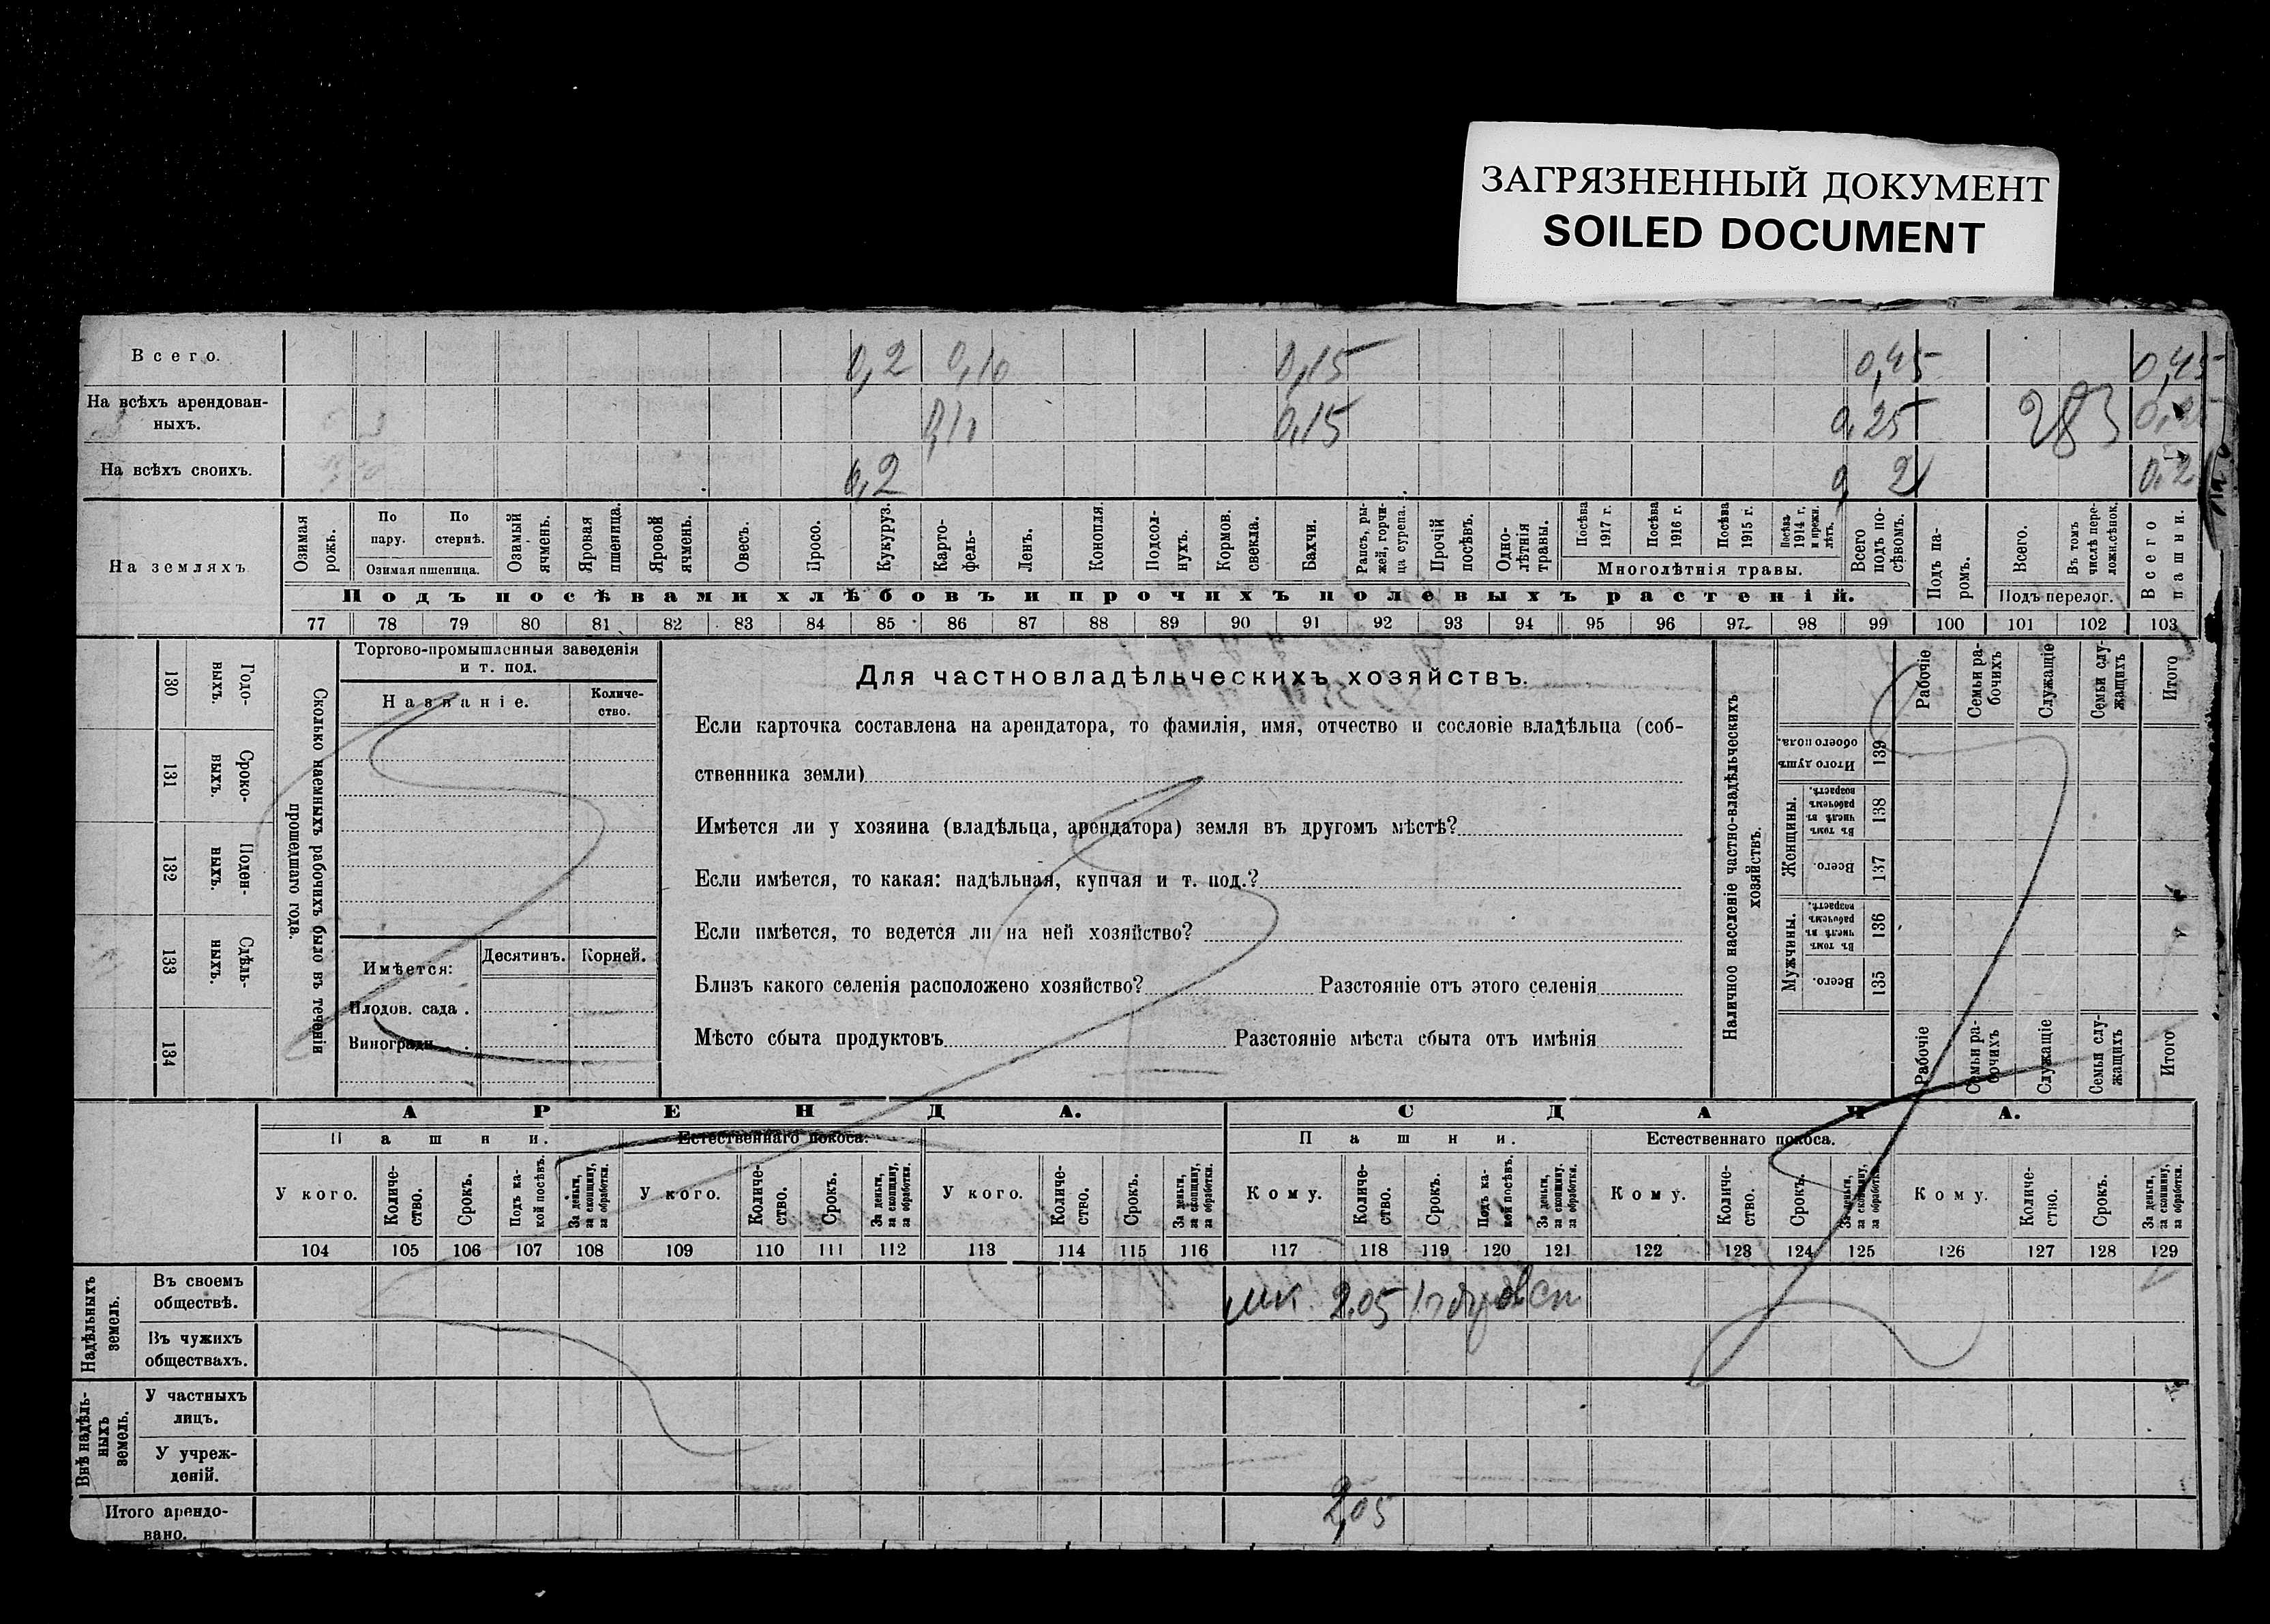 ЗАГРЯЗНЕННЫЙ ДОКУМЕНТ
SOILED DOCUMENT
Всего. 0,2 0,10 0,15 0,45 0,45
На всѣхъ арендован-
ныхъ. 0,15 0,25 283
На всѣхъ своихъ. 0,2 0,2
На земляхъ
Озимая рожь.
По пару.
По стернѣ.
Озимая пшеница.
Озимый ячмень.
Яровая пшеница.
Яровой ячмень.
Овесъ.
Просо.
Кукуруз.
Карто-
фель-
Ленъ.
Конопля.
Подсол-
нухъ.
Кормов.
свекла.
Бахчи.
Рапсъ, ры-
жей, горчи-
ца сурепа.
Прочій
посѣвъ.
Одно-
лѣтнія
травы.
Посѣва
1917 г.
Посѣва
1916 г.
Посѣва
1915 г.
Посѣва
1914 г.
и прежн.
лѣтъ.
Многолѣтнія травы.
Всего
подъ по-
сѣвомъ.
Подъ па-
ромъ.
Всего.
Въ томъ
числѣ пере-
ложн.сѣнок.
Подъ перелог.
Всего
пашни.
Подъ посѣвами хлѣбовъ и прочихъ полевыхъ растеній.
77 78 79 80 81 82 83 84 85 86 87 88 89 90 91 92 93 94 95 96 97 98 99 100 101 102 103
130 Годо-
выхъ.
131 Сроко-
ныхъ.
132 Поден-
ныхъ.
133 Сдѣль-
ныхъ.
134
Сколько наемныхъ рабочихъ было въ теченіи
прошедшаго года.
Торгово-промышленныя заведенія
и т. под.
Названіе.
Количе-
ство.
Имѣется:
Десятинъ. Корней.
Плодов. сада .
Виноградн. .
Для частновладѣльческихъ хозяйствъ.
Если карточка составлена на арендатора, то фамилія, имя, отчество и сословіе владѣльца (соб-
ственника земли)
Имѣется ли у хозяина (владѣльца, арендатора) земля въ другомъ мѣстѣ?
Если имѣется, то какая: надѣльная, купчая и т. под.?
Если имѣется, то ведется ли на ней хозяйство?
Близъ какого селенія расположено хозяйство? Разстояніе отъ этого селенія
Мѣсто сбыта продуктовъ Разстояніе мѣста сбыта отъ имѣнія
Наличное населеніе частно-владѣльческихъ
хозяйствъ.
Рабочіе
Семьи ра-
бочихъ
Служащіе
Семьи слу-
жащихъ
Итого
Итого душъ
обоего пола. 139
Женщины.
Въ томъ
числѣ въ
рабочемъ
возрастѣ. 138
Всего. 137
Мужчины.
Въ томъ
числѣ въ
рабочемъ
возрастѣ. 136
Всего. 135
Рабочіе
Семьи ра-
бочихъ
Служащіе
Семьи слу-
жащихъ
Итого
АРЕНДА. СДАЧА.
Пашни. Естественнаго покоса. Пашни. Естественнаго покоса.
У кого.
Количе-
ство.
Срокъ.
Подъ ка-
кой посѣвъ.
За деньги,
за скопщину,
за обработки.
У кого.
Количе-
ство.
Срокъ.
За деньги,
за скопщину,
за обработки.
У кого.
Количе-
ство.
Срокъ.
За деньги,
за скопщину,
за обработки.
Кому.
Количе-
ство.
Срокъ.
Подъ ка-
кой посѣвъ.
За деньги,
за скопщину.
за обработки.
Кому.
Количе-
ство.
Срокъ.
За деньги,
за скопщину,
за обработки.
Кому.
Количе-
ство.
Срокъ.
За деньги,
за скопщину,
за обработки.
104 105 106 107 108 109 110 111 112 113 114 115 116 117 118 119 120 121 122 123 124 125 126 127 128 129
Надѣльныхъ
земель.
Въ своемъ
обществѣ. 2.05
Въ чужихъ
обществахъ.
Внѣ надѣль-
ныхъ
земель.
У частныхъ
лицъ.
У учреж-
деній.
Итого арендо-
вано. 2,05